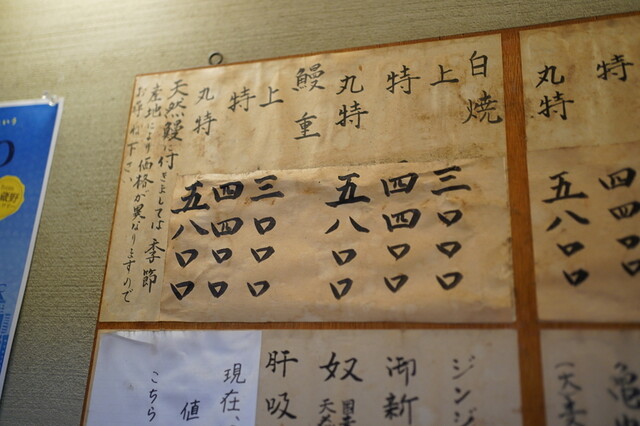 特
四
丸特
五八〇〇
白焼
上 三〇〇〇
特 四四〇〇
丸特 五八〇〇
鰻重
上 三〇〇〇
特 四四〇〇
丸特 五八〇〇
天然鰻に付きましては季節
産地により価格が異なりますので
お尋ね下さい
ジンジ
御新
奴
肝吸
現在、
値
こちら